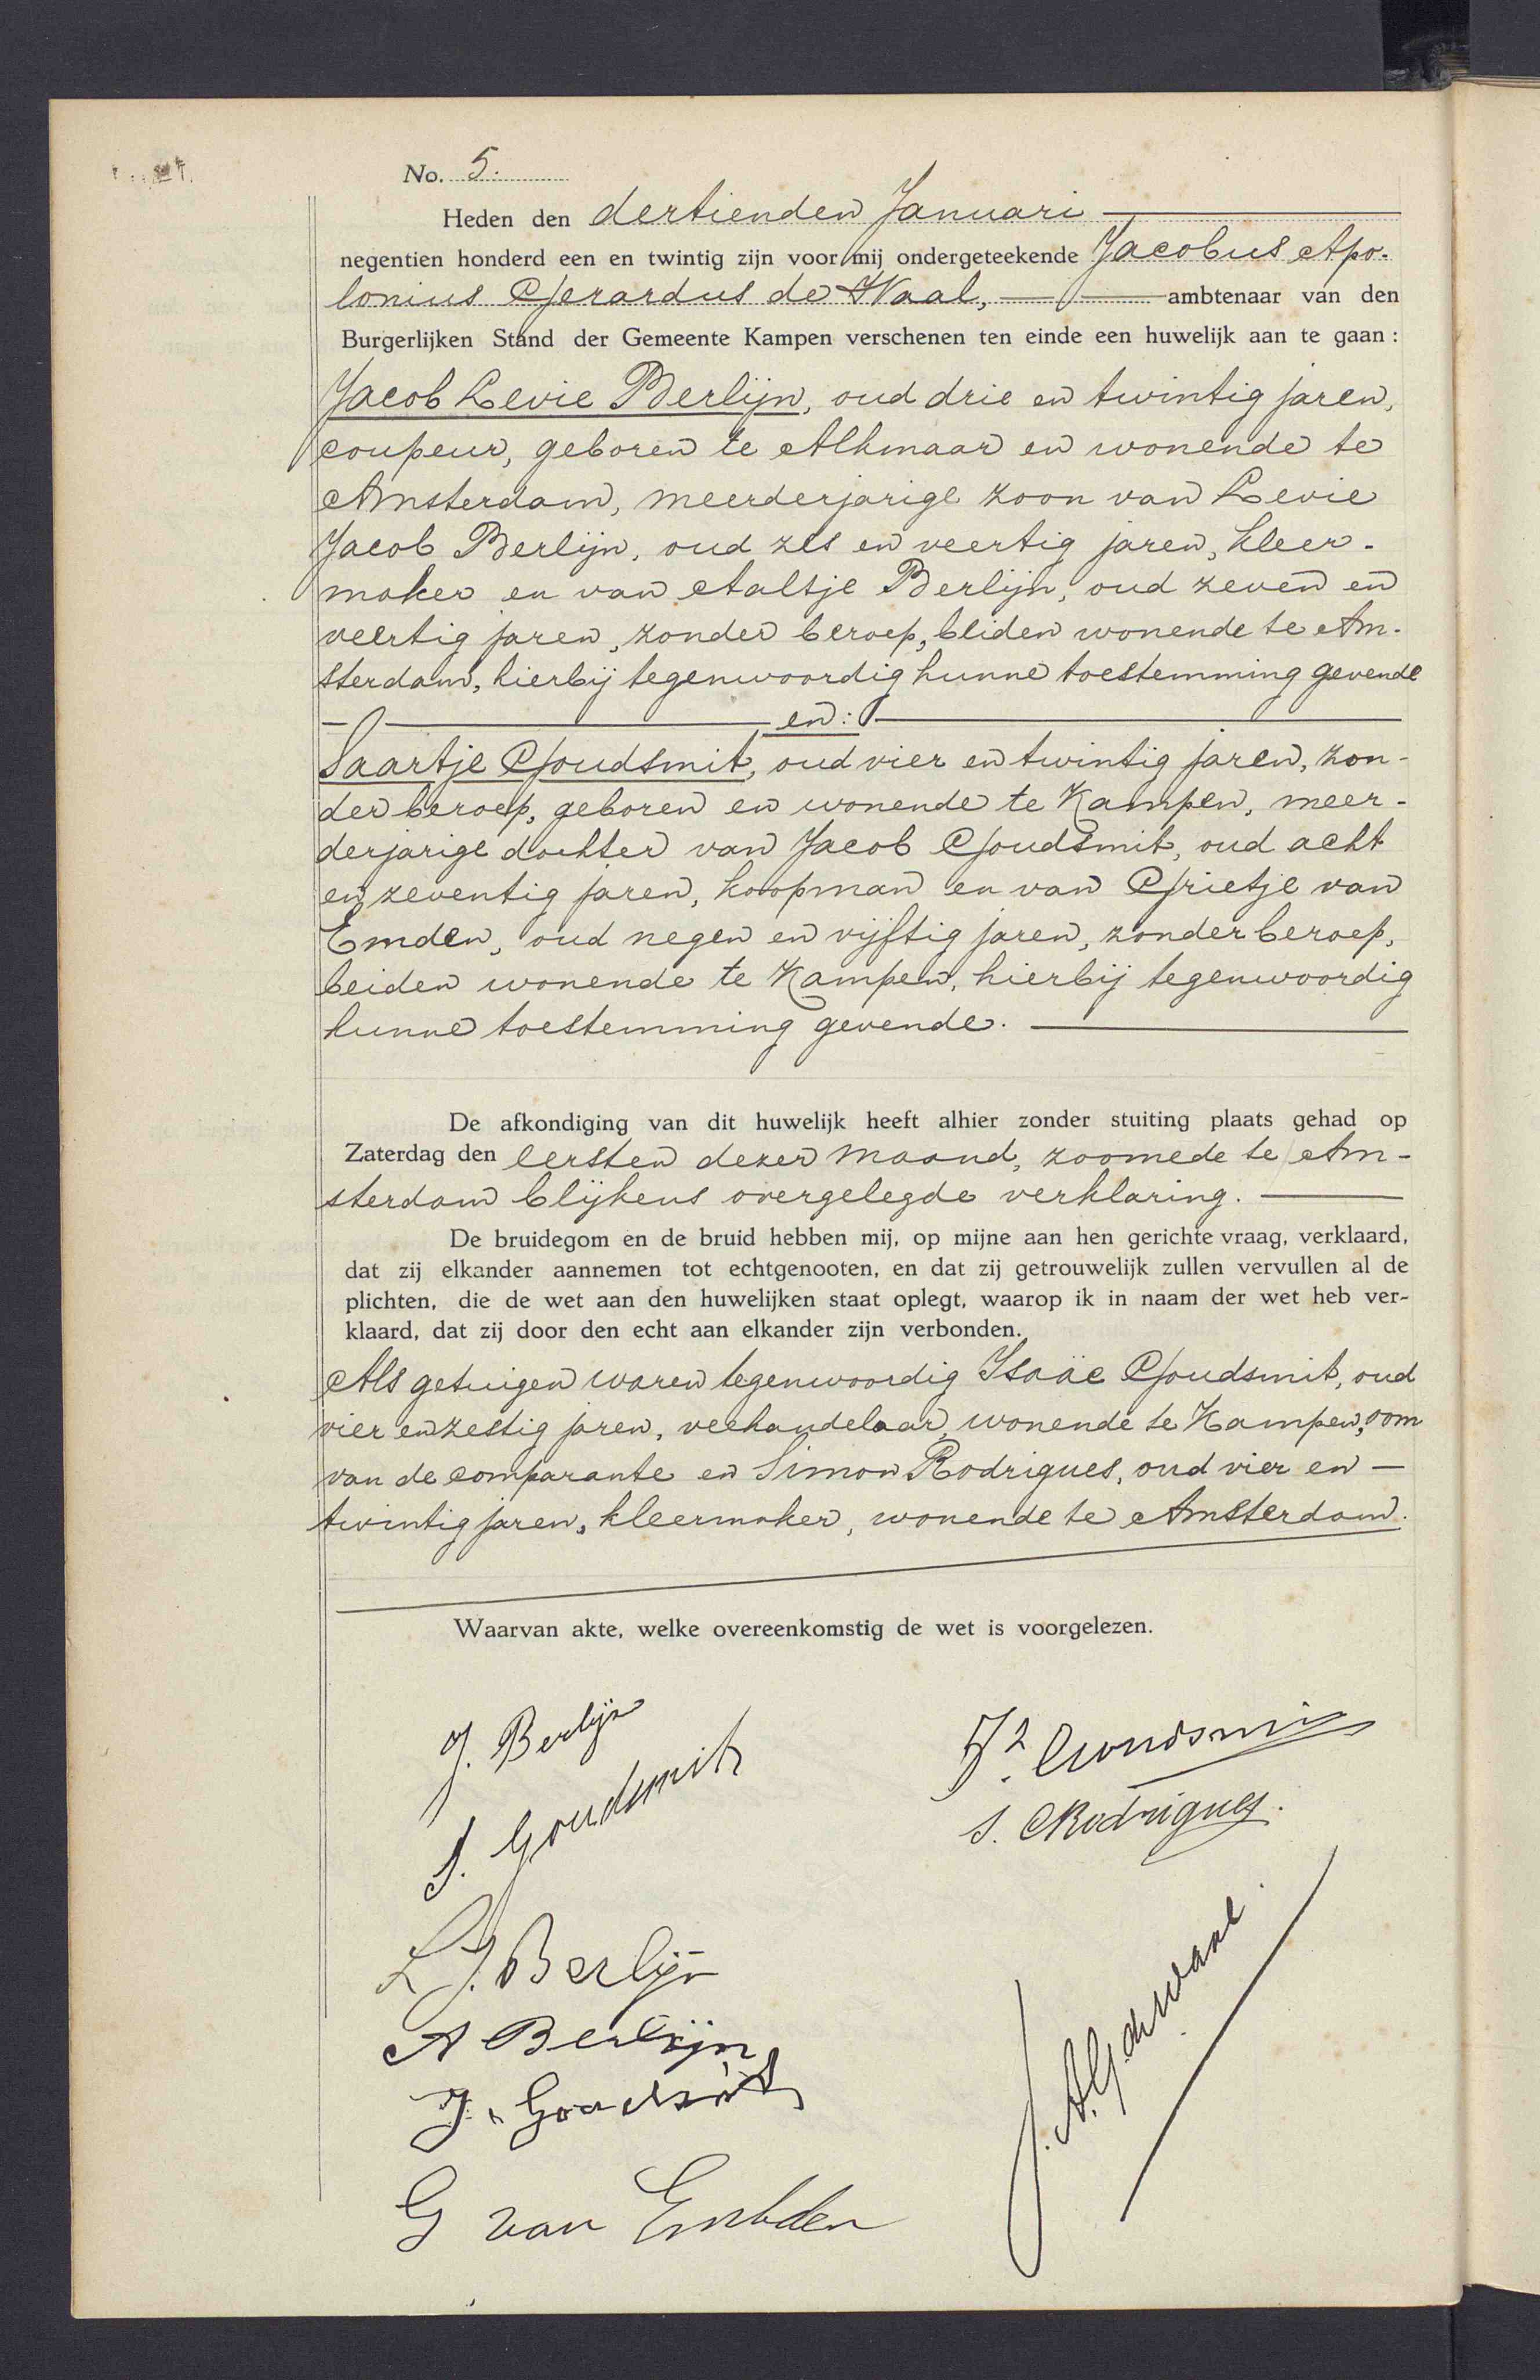 No. 5.
Heden den dertienden Januari
negentien honderd een en twintig zijn voor mij ondergeteekende Jacobus Apo-
lonius Gerardus de Waal, ambtenaar van den
Burgerlijken Stand der Gemeente Kampen verschenen ten einde een huwelijk aan te gaan:
Jacob Levie Berlijn, oud drie en twintig jaren,
coupeur, geboren te Alkmaar en wonende te
Amsterdam, meerderjarige zoon van Levie
Jacob Berlijn, oud zes en veertig jaren, kleer-
maker en van Aaltje Berlijn, oud zeven en
veertig jaren, zonder beroep, beiden wonende te Am-
sterdam, hierbij tegenwoordig hunne toestemming gevende
en:
Saartje Goudsmit, oud vier en twintig jaren, zon-
der beroep, geboren en wonende te Kampen, meer-
derjarige dochter van Jacob Goudsmit, oud acht
en zeventig jaren, koopman en van Grietje van
Emden, oud negen en vijftig jaren, zonder beroep,
beiden wonende te Kampen, hierbij tegenwoordig
hunne toestemming gevende.
De afkondiging van dit huwelijk heeft alhier zonder stuiting plaats gehad op
Zaterdag den eersten dezer maand, zoomede te Am-
sterdam blijkens overgelegde verklaring.
De bruidegom en de bruid hebben mij, op mijne aan hen gerichte vraag, verklaard,
dat zij elkander aannemen tot echtgenooten, en dat zij getrouwelijk zullen vervullen al de
plichten, die de wet aan den huwelijken staat oplegt, waarop ik in naam der wet heb ver-
klaard, dat zij door den echt aan elkander zijn verbonden.
Als getuigen waren tegenwoordig Isaäc Goudsmit, oud
vier en zestig jaren, veehandelaar, wonende te Kampen, oom
van de comparante en Simon Rodrigues, oud vier en
twintig jaren, kleermaker, wonende te Amsterdam.
Waarvan akte, welke overeenkomstig de wet is voorgelezen.
J. Berlijn
S. Goudsmit
Goudsmit
S. Rodrigues.
L J. Berlijn
A Berlijn
J. Goudsmit
G van Embden
J. A. G. de Waal.